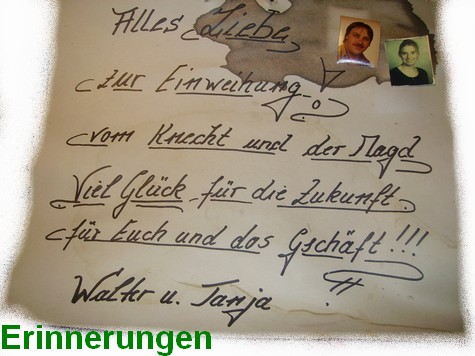 Alles Liebe
zur Einweihung!
vom Knecht und der Magd
Viel Glück für die Zukunft
für Euch und das Gschäft!!!
Walter u. Tanja !!
Erinnerungen